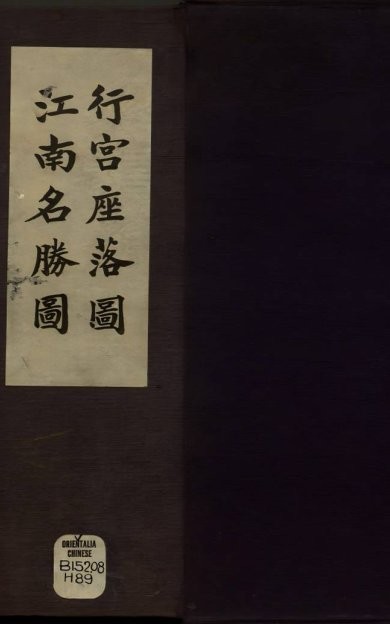 行宮座落圖
江南名勝圖
ORIENTALIA
CHINESE
B15208
H89